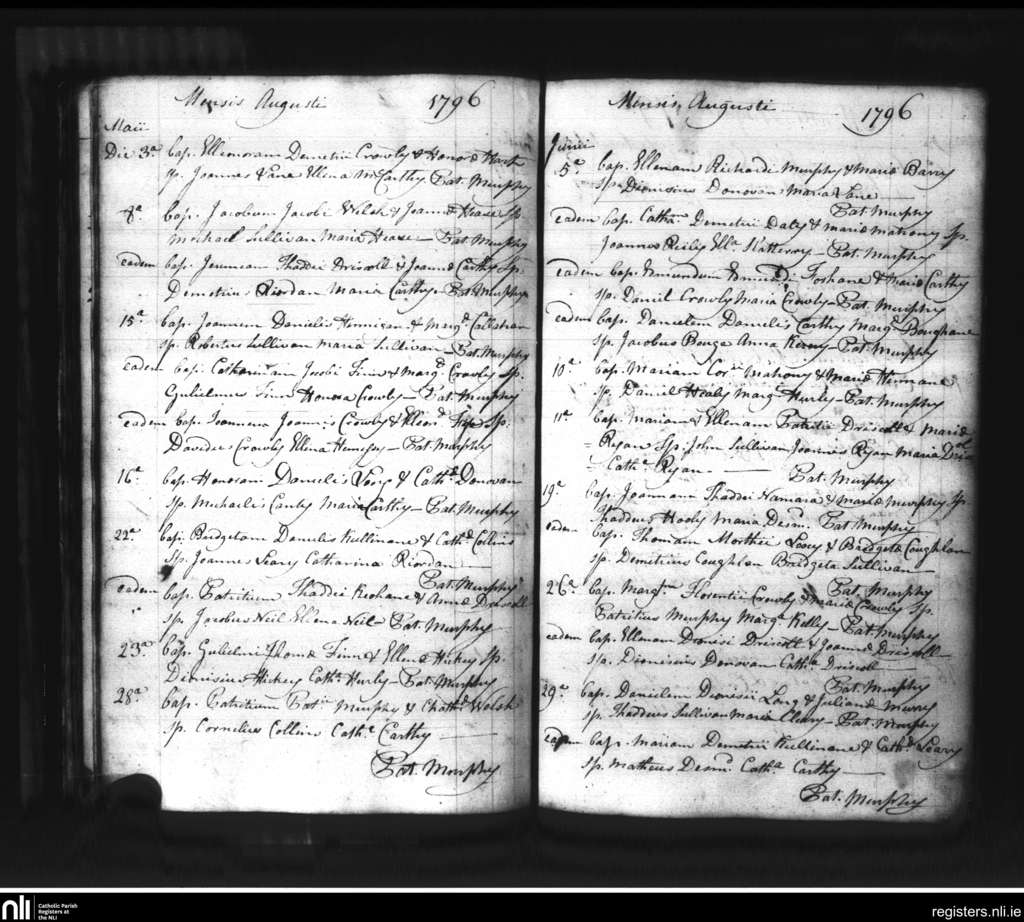 Mensis Augusti 1796
Maii
Die 3a bap. Ellenoram Demetrii Crowly & Honorae Hart
sp. Joannes Lane Ellena McCarthy. Pat. Murphy
8a bap. Jacobum Jacobi Welsh & Joannae Hease sp.
Michael Sullivan Maria Hease — Pat. Murphy
eadem bap. Jeremiam Thaddei Driscoll & Joannae Carthy Sp.
Demetrius Riordan Maria Carthy — Pat. Murphy
15a bap. Joannem Danielis Hennigan & Marg. Callahan
sp. Robertus Sullivan Maria Sullivan — Pat. Murphy
eadem bap. Catharinam Jacobi Finn & Marg. Crowly Sp.
Gulielmus Finn Honora Crowly — Pat. Murphy
eadem bap. Joannem Joannis Crowly & Sp.
Davidus Crowly Ellena Hennessy — Pat. Murphy
16a bap. Honoram Danielis Long & Cathae Donovan
Sp. Michaelis Canty Maria Carthy — Pat. Murphy
22a bap. Bridgetam Danielis Kullinane & Cathae Collins
Sp. Joannes Leary Catharina Riordan —
Pat. Murphy
eadem bap. Patritium Thaddei Keohane & Annae Driscoll
sp. Jacobus Neil Ellena Neil Pat. Murphy
23a bap. Gulielmi Thomae Finn & Ellenae Hickey Sp.
Dionisius Hickey Catha Hurly — Pat. Murphy
28a bap. Patritium Pat. Murphy & Chathae Welsh
sp. Cornelius Collins Catha Carthy —
Pat. Murphy
Mensis Augusti 1796
Junii
5a bap. Ellenam Richardi Murphy & Mariae Barry
sp. Dionisius Donovan Maria Lane —
Pat. Murphy
eadem bap. Catham Demetrii Daly & Mariae Mahony Sp.
Joannes Reily Ella Slattery — Pat. Murphy
eadem bap. Edmundum Edmundi Foshane & Mariae Carthy
sp. Daniel Crowly Maria Crowly — Pat. Murphy
eadem bap. Danielem Danielis Carthy Marg. Boughane
sp. Jacobus Anna — Pat. Murphy
10a bap. Mariam Cor. Mahony & Mariae
sp. Daniel Healy Marg. Hurly — Pat. Murphy
11a bap. Mariam & Ellenam Patritii Driscoll & Mariae
Ryan Sp. John Sullivan Joannes Ryan Maria Driscol
Catha Ryan — Pat. Murphy
19a bap. Joannem Thaddei Hamara & Mariae Murphy Sp.
Thaddeus Maria Desm. Pat. Murphy
eadem bap. Thomam Leary & Bridgetae Coughlan
sp. Demetrius Coughlan Bridgeta Sullivan —
Pat. Murphy
26a bap. Margam Florentii Crowly & Mariae Crowly Sp.
Patritius Murphy Marga Kelly — Pat. Murphy
eadem bap. Ellenam Denisi Driscoll & Joannae Driscoll —
sp. Dionisius Donovan Catha Driscoll —
Pat. Murphy
29a bap. Danielem Dionisii Long & Julianae Murry
sp. Thaddeus Sullivan Maria Cleary — Pat. Murphy
eadem bap. Mariam Demetrii Kullinane & Cathae Leary
sp. Matheus Desm. Catha Carthy —
Pat. Murphy
nli Catholic Parish
Registers at
the NLI
registers.nli.ie